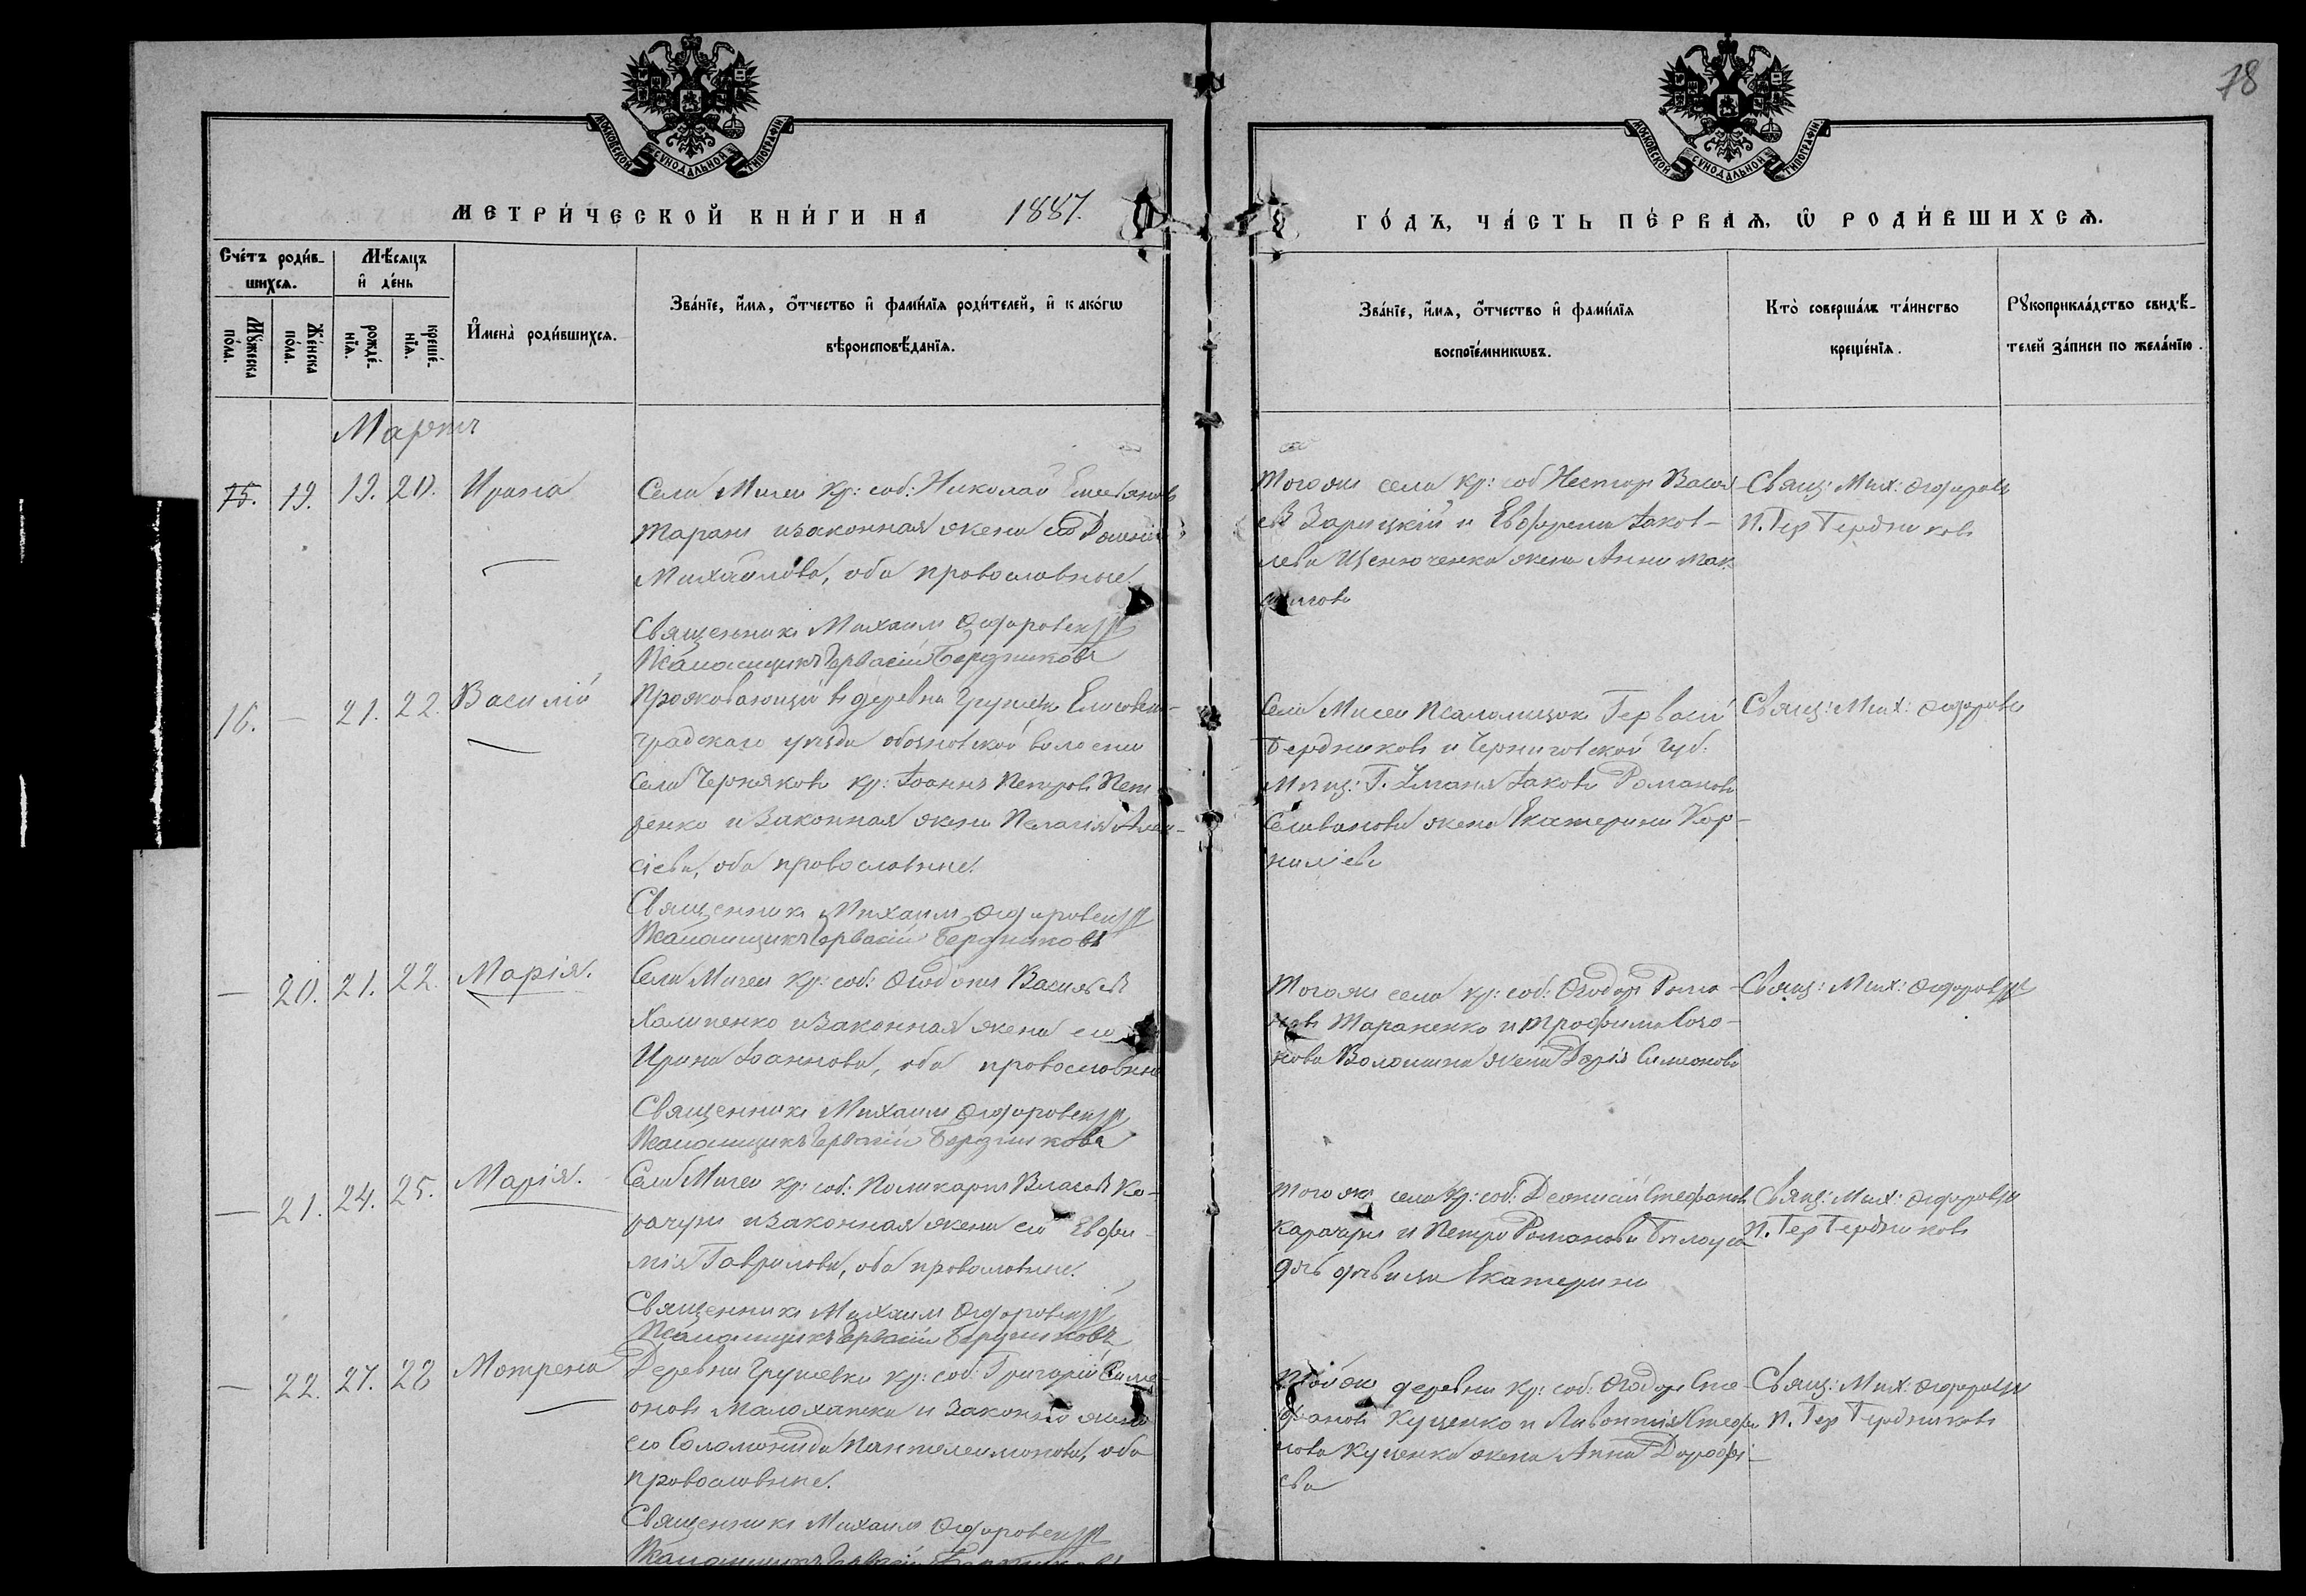 78
МОСКОВСКОЙ СѴНОДАЛЬНОЙ ТИПОГРАФІИ
МОСКОВСКОЙ СѴНОДАЛЬНОЙ ТИПОГРАФІИ
МЕТРИ́ЧЕСКОЙ КНИ́ГИ НА 1887.
ГО́ДЪ, ЧА́СТЬ ПЕ́РВАѦ, Ѡ҆ РОДИ́ВШИХСѦ.
Сче́тъ роди́в-
шихсѧ.
Мѣ́сѧцъ
и҆ де́нь
Мꙋ́жеска
по́ла.
Же́нска
по́ла.
рожде́-
нїѧ.
креще́-
нїѧ.
И҆мена̀ роди́вшихсѧ.
Зва́нїе, и҆́мѧ, ѻ҆́тчество и҆ фами́лїѧ роди́телей, и҆ како́гѡ
вѣроисповѣ́данїѧ.
Зва́нїе, и҆́мѧ, ѻ҆́тчество и҆ фами́лїѧ
воспрїе́мникѡвъ.
Кто̀ соверша́лъ та́инство
креще́нїѧ.
Рꙋкоприкла́дство свидѣ́-
телей за́писи по жела́нїю.
Мартъ
15. 19. 19. 20. Ирина
Села Мигеи кр: соб: Николай Емельяновъ
Таранъ и законная жена его
Михайлова, оба православные.
Священникъ Михаилъ
Псаломщикъ Гервасій Бердниковъ
Тогоже села кр: соб: Несторъ Васил-
евъ Зарицкій и Евфрема Іаков-
лева жена Анна Мак-
симова
Свящ: Мих:
П. Гер Бердниковъ
16. — 21. 22. Василій
Проживающій въ деревни Грушевкѣ Елисавет-
градскаго уѣзда волости
Села Черняковъ кр: Іоаннъ Петровъ
и законная жена Пелагія
сіева, оба православные.
Священникъ Михаилъ
Псаломщикъ Гервасій Бердниковъ
Села Мигеи Псаломщикъ Гервасій
Бердниковъ и Черниговской Губ.
Мѣщ: Іакова Романова
Селиванова жена Екатерина Кор-
нилієва
Свящ: Мих:
— 20. 21. 22. Марія.
Села Мигеи кр: соб: Васильевъ
Халипенко и законная жена его
Ирина Іоаннова, оба православные
Священникъ Михаилъ
Псаломщикъ Гервасій Бердниковъ
Тогоже села кр: соб: Ѳеодоръ Рома-
новъ Тараненко и Трофима Созо-
нова Волошина жена Дарія Симеонова
Свящ: Мих:
— 21. 24. 25. Марія.
Села Мигеи кр: соб: Поликарпъ Власовъ Ка-
рачунъ и законная жена его Евфи-
мія Гаврилова, оба православные.
Священникъ Михаилъ
Псаломщикъ Гервасій Бердниковъ
Тогоже села кр: соб: Діонисій Стефановъ
Карачунъ и Петра Романова Билоуса
дочь дѣвица Екатерина
Свящ: Мих:
П. Гер Бердниковъ
— 22. 27. 28 Мотрена
Деревни Грушевки кр: соб: Григорій Симе-
оновъ и законная жена
его Соломонида Пантелеимонова, оба
православные.
Священникъ Михаилъ
Псаломщикъ Гервасій Бердниковъ
Той же деревни кр: соб: Ѳеодоръ Сте-
фановъ Куценко и Стефа-
нова Куценка жена Анна Дорофі-
ева
Свящ: Мих:
П. Гер Бердниковъ